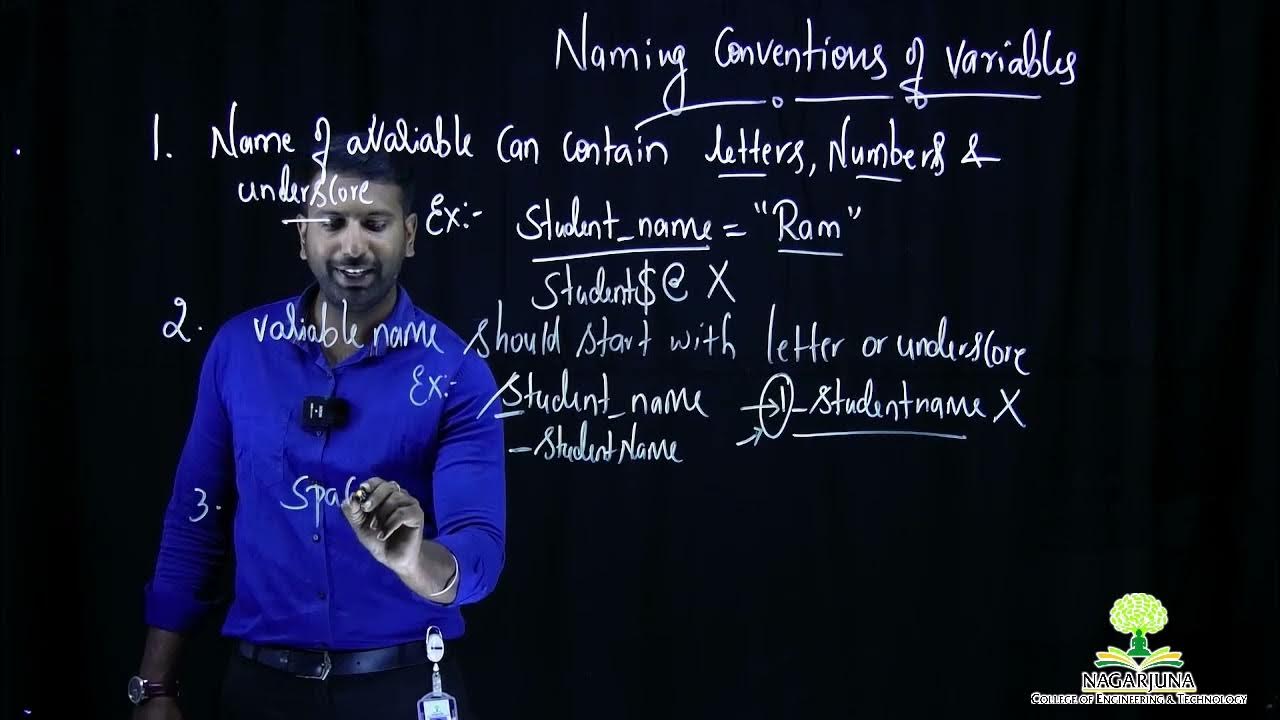 Naming Conventions of variables
1. Name of a variable can contain letters, Numbers &
underscore
Ex:- Student_name = "Ram"
Student$@ X
2. variable name should start with letter or underscore
Ex:- Student_name → 1-Studentname X
_StudentName →
3. Spac
NAGARJUNA
COLLEGE OF ENGINEERING & TECHNOLOGY